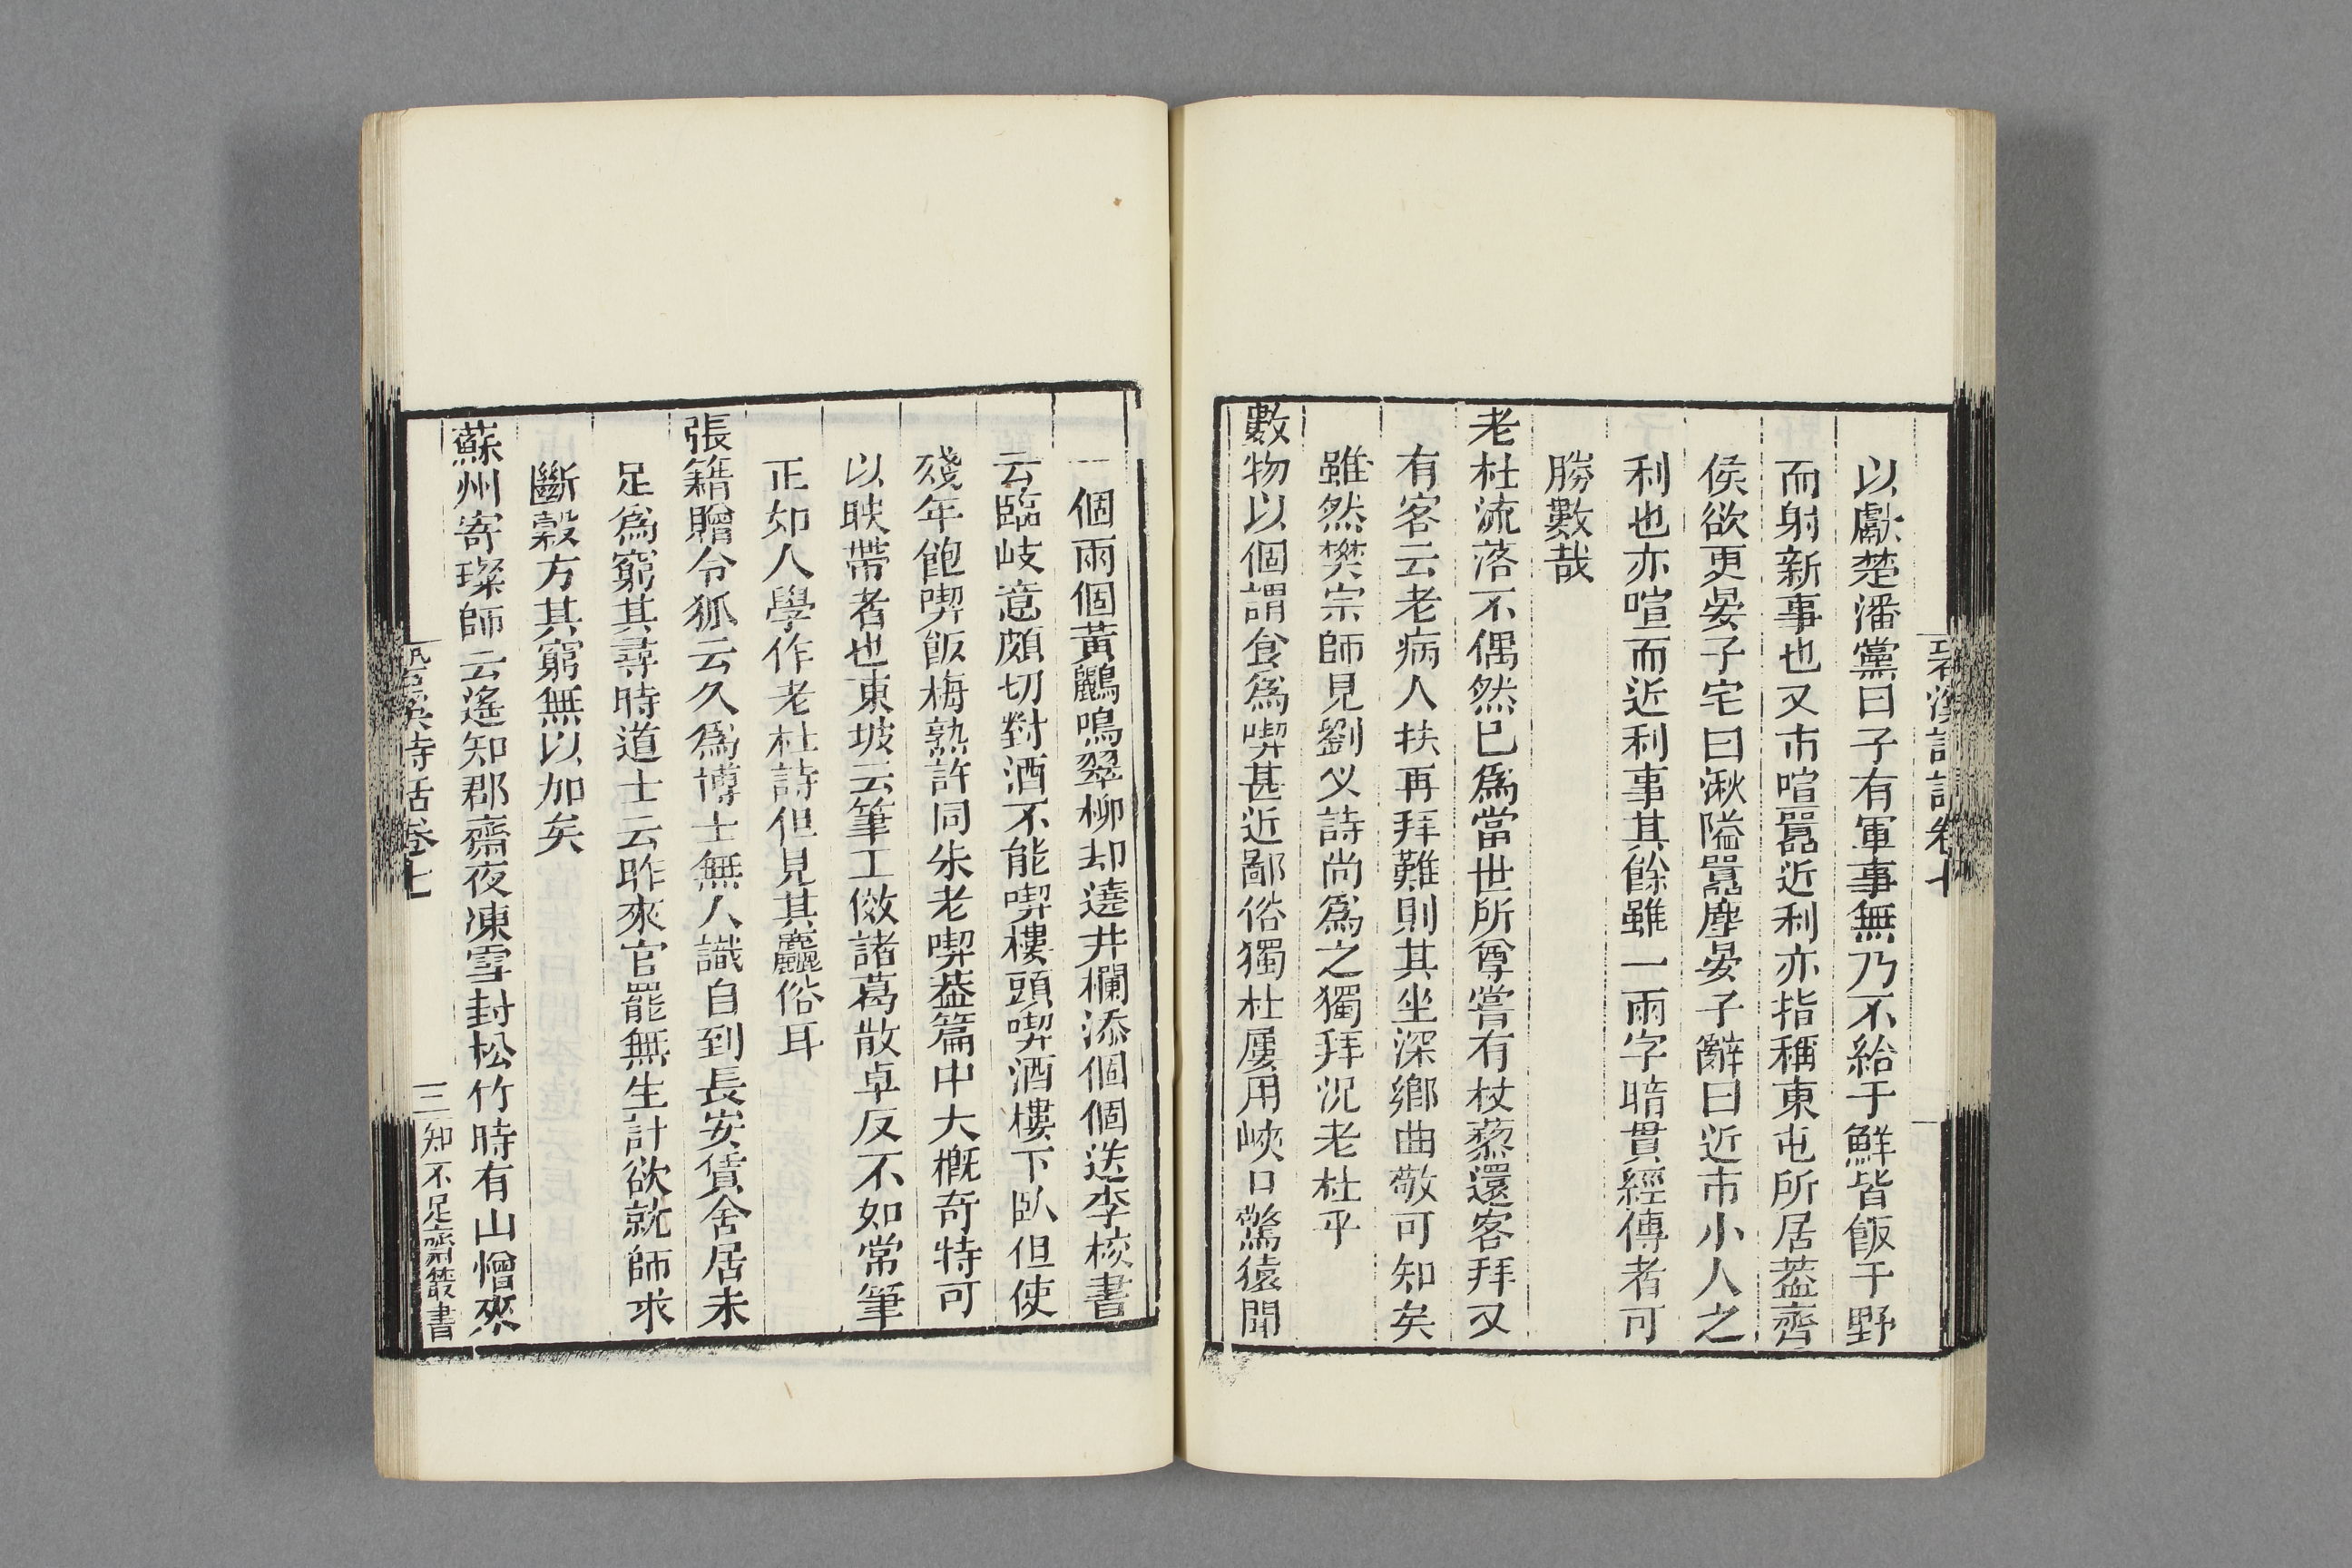 以獻楚潘黨曰子有軍事無乃不給于鮮皆飯于野
而射新事也又市喧囂近利亦指稱東屯所居葢齊
侯欲更晏子宅曰湫隘囂塵晏子辭曰近市小人之
利也亦喧而近利事其餘雖一兩字暗貫經傳者可
勝數哉
老杜流落不偶然已爲當世所尊嘗有杖藜還客拜又
有客云老病人扶再拜難則其坐深鄉曲敬可知矣
雖然樊宗師見劉乂詩尚爲之獨拜況老杜乎
數物以個謂食爲喫甚近鄙俗獨杜屢用峽口驚猿聞
一個兩個黃鸝鳴翠柳却遶井欄添個個送李校書
云臨岐意頗切對酒不能喫樓頭喫酒樓下臥但使
殘年飽喫飯梅熟許同朱老喫葢篇中大槪奇特可
以映帶者也東坡云筆工傚諸葛散卓反不如常筆
正如人學作老杜詩但見其麤俗耳
張籍贈令狐云久爲博士無人識自到長安賃舍居未
足爲窮其尋時道士云昨來官罷無生計欲就師求
斷穀方其窮無以加矣
蘇州寄璨師云遙知郡齋夜凍雪封松竹時有山僧來
溪詩話卷七
三
知不足齋叢書